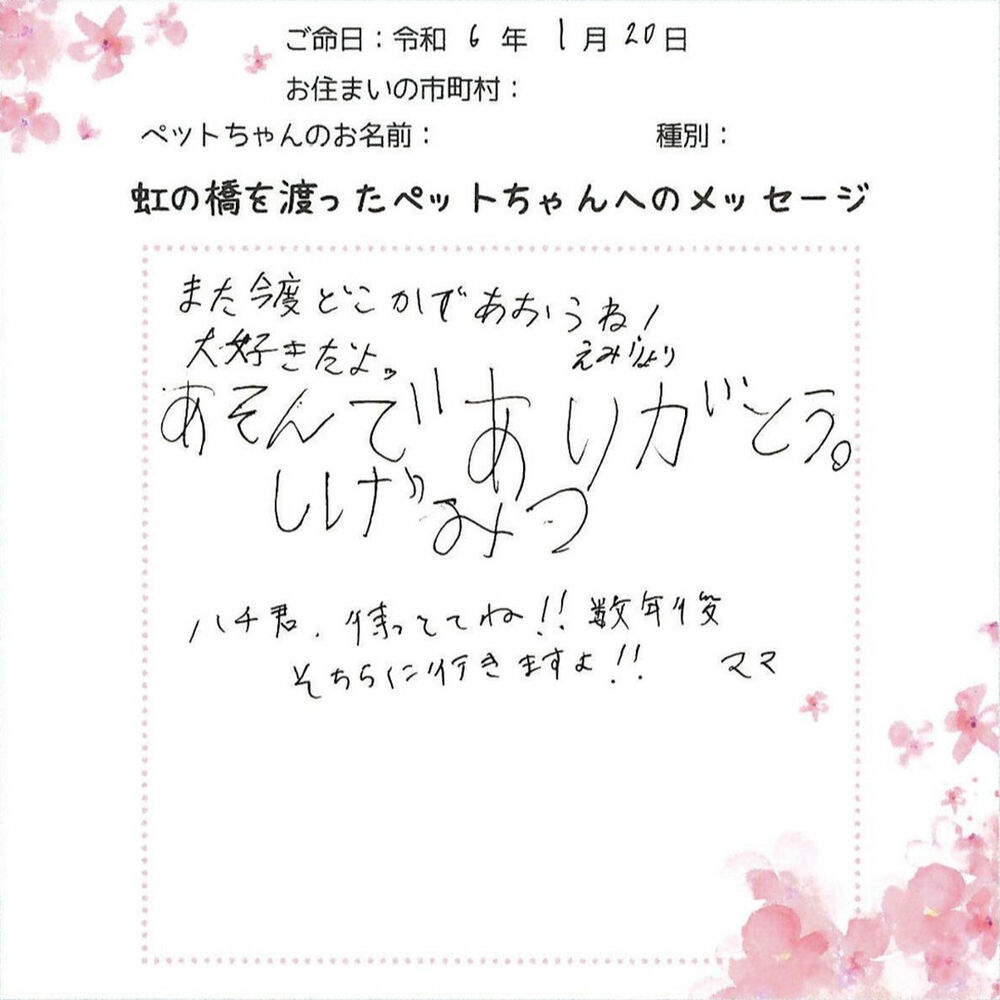 ご命日：令和 6 年 1 月 20 日
お住まいの市町村：
ペットちゃんのお名前： 種別：
虹の橋を渡ったペットちゃんへのメッセージ
また今度どこかであおうね！
大好きだよッ えみりより
あそんでありがとう。
しげみつ
ハチ君、待っててね!! 数年後
そちらに行きますよ!! ママ